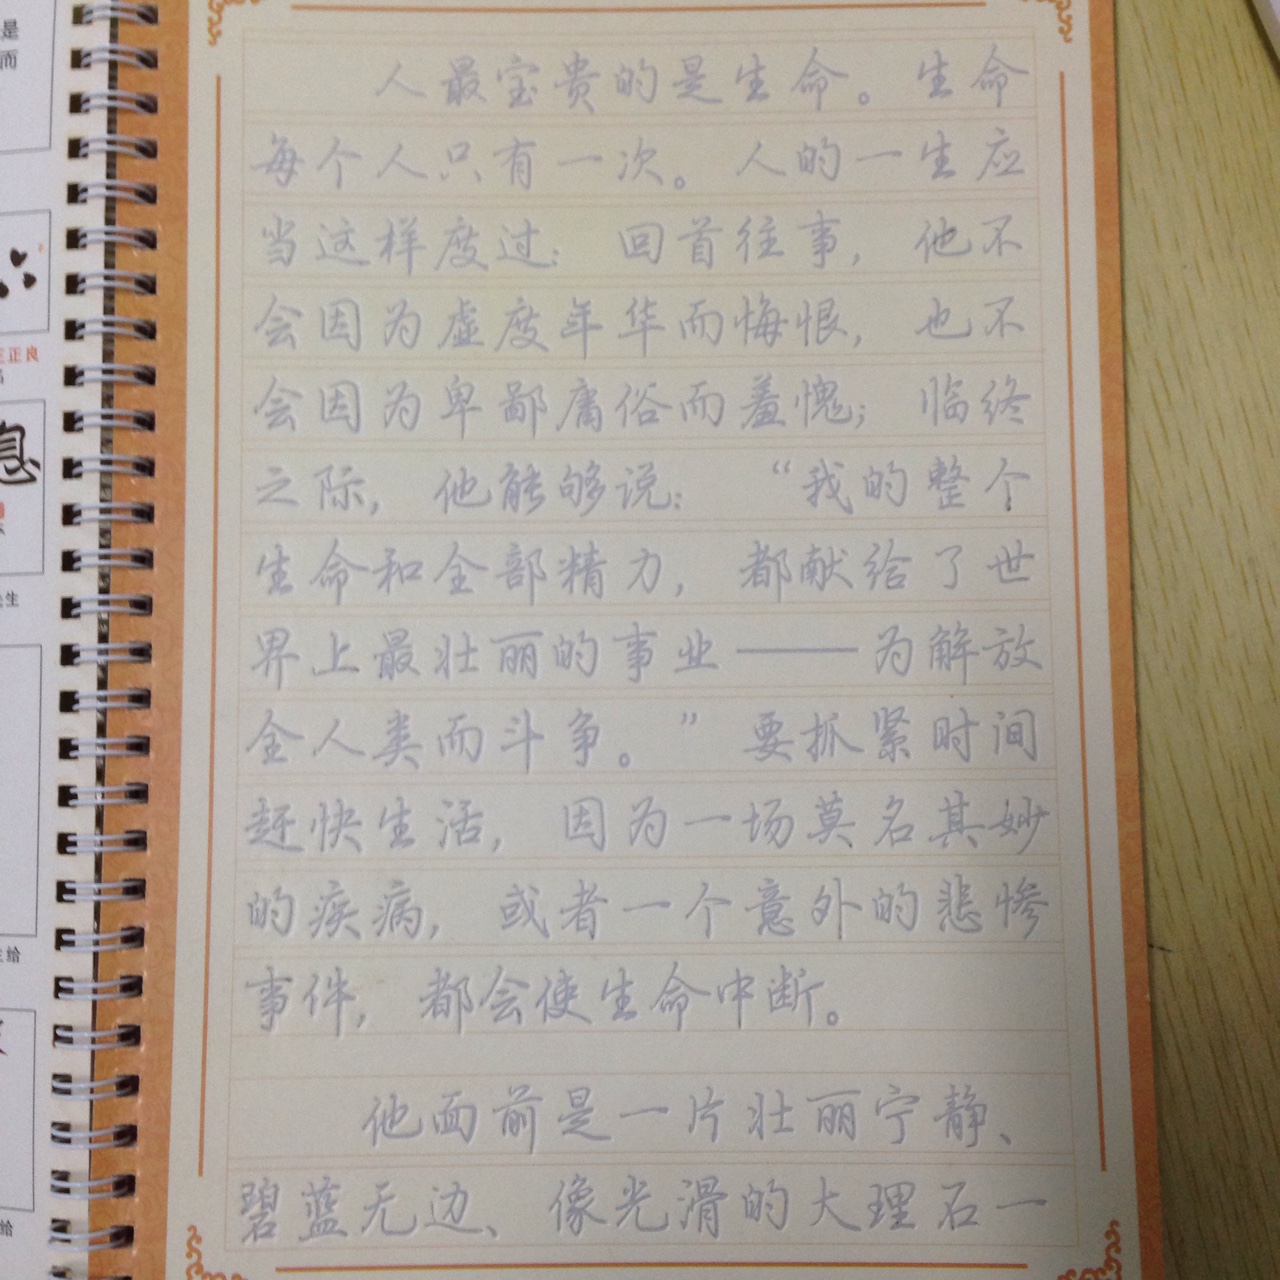 人最宝贵的是生命。生命
每个人只有一次。人的一生应
当这样度过：回首往事，他不
会因为虚度年华而悔恨，也不
会因为卑鄙庸俗而羞愧；临终
之际，他能够说：“我的整个
生命和全部精力，都献给了世
界上最壮丽的事业——为解放
全人类而斗争。”要抓紧时间
赶快生活，因为一场莫名其妙
的疾病，或者一个意外的悲惨
事件，都会使生命中断。
他面前是一片壮丽宁静、
碧蓝无边、像光滑的大理石一
是
而
王正良
息
生
给
给